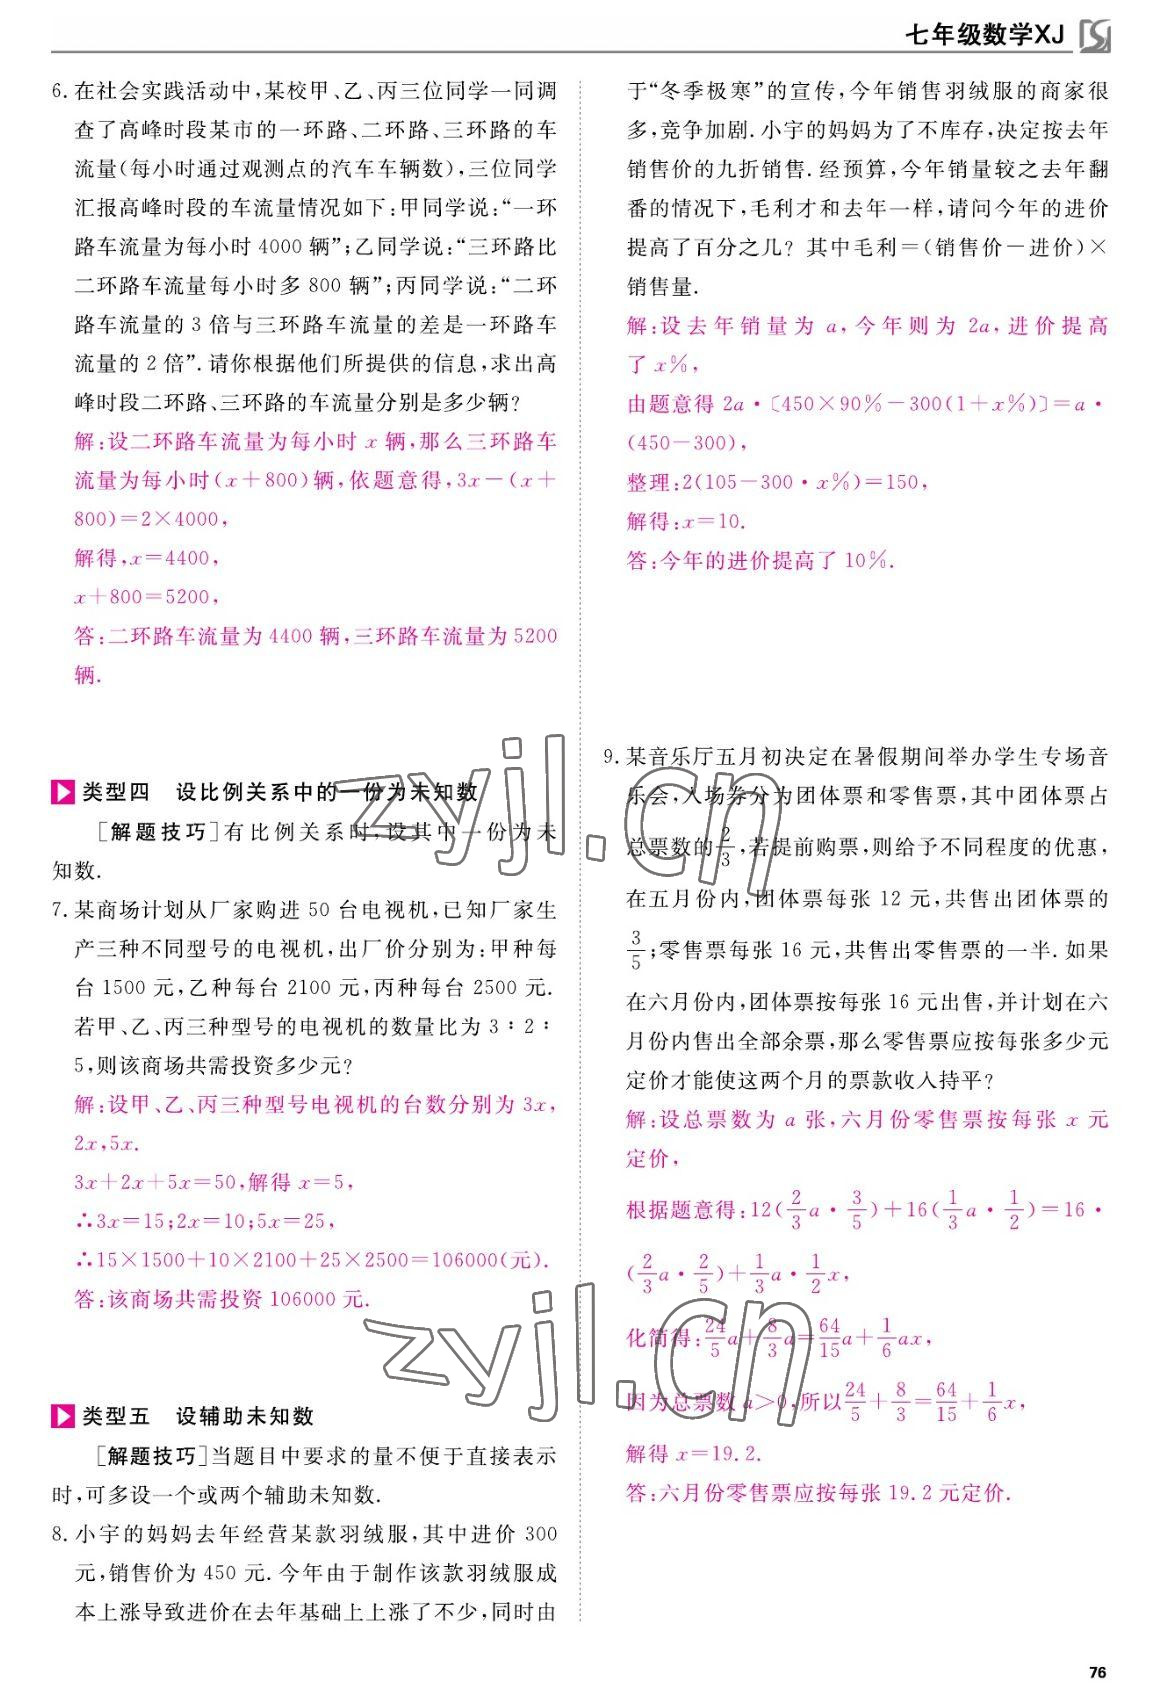 七年级数学XJ
6. 在社会实践活动中,某校甲、乙、丙三位同学一同调
查了高峰时段某市的一环路、二环路、三环路的车
流量(每小时通过观测点的汽车车辆数),三位同学
汇报高峰时段的车流量情况如下:甲同学说:“一环
路车流量为每小时 4000 辆”;乙同学说:“三环路比
二环路车流量每小时多 800 辆”;丙同学说:“二环
路车流量的 3 倍与三环路车流量的差是一环路车
流量的 2 倍”. 请你根据他们所提供的信息,求出高
峰时段二环路、三环路的车流量分别是多少辆?
解:设二环路车流量为每小时 x 辆,那么三环路车
流量为每小时(x+800)辆,依题意得,3x-(x+
800)=2×4000,
解得,x=4400,
x+800=5200,
答:二环路车流量为 4400 辆,三环路车流量为 5200
辆.
类型四 设比例关系中的一份为未知数
[解题技巧]有比例关系时,设其中一份为未
知数.
7. 某商场计划从厂家购进 50 台电视机,已知厂家生
产三种不同型号的电视机,出厂价分别为:甲种每
台 1500 元,乙种每台 2100 元,丙种每台 2500 元.
若甲、乙、丙三种型号的电视机的数量比为 3∶2∶
5,则该商场共需投资多少元?
解:设甲、乙、丙三种型号电视机的台数分别为 3x,
2x,5x.
3x+2x+5x=50,解得 x=5,
∴3x=15;2x=10;5x=25,
∴15×1500+10×2100+25×2500=106000(元).
答:该商场共需投资 106000 元.
类型五 设辅助未知数
[解题技巧]当题目中要求的量不便于直接表示
时,可多设一个或两个辅助未知数.
8. 小宇的妈妈去年经营某款羽绒服,其中进价 300
元,销售价为 450 元. 今年由于制作该款羽绒服成
本上涨导致进价在去年基础上上涨了不少,同时由
于“冬季极寒”的宣传,今年销售羽绒服的商家很
多,竞争加剧. 小宇的妈妈为了不库存,决定按去年
销售价的九折销售. 经预算,今年销量较之去年翻
番的情况下,毛利才和去年一样,请问今年的进价
提高了百分之几? 其中毛利=(销售价-进价)×
销售量.
解:设去年销量为 a,今年则为 2a,进价提高
了 x%,
由题意得 2a·〔450×90%-300(1+x%)〕=a·
(450-300),
整理:2(105-300·x%)=150,
解得:x=10.
答:今年的进价提高了 10%.
9. 某音乐厅五月初决定在暑假期间举办学生专场音
乐会,入场券分为团体票和零售票,其中团体票占
总票数的2/3,若提前购票,则给予不同程度的优惠,
在五月份内,团体票每张 12 元,共售出团体票的
3/5;零售票每张 16 元,共售出零售票的一半. 如果
在六月份内,团体票按每张 16 元出售,并计划在六
月份内售出全部余票,那么零售票应按每张多少元
定价才能使这两个月的票款收入持平?
解:设总票数为 a 张,六月份零售票按每张 x 元
定价,
根据题意得:12(2/3a·3/5)+16(1/3a·1/2)=16·
(2/3a·2/5)+1/3a·1/2x,
化简得:24/5a+8/3a=64/15a+1/6ax,
因为总票数 a>0,所以24/5+8/3=64/15+1/6x,
解得 x=19.2.
答:六月份零售票应按每张 19.2 元定价.
zyjl.cn
zyjl.cn
76